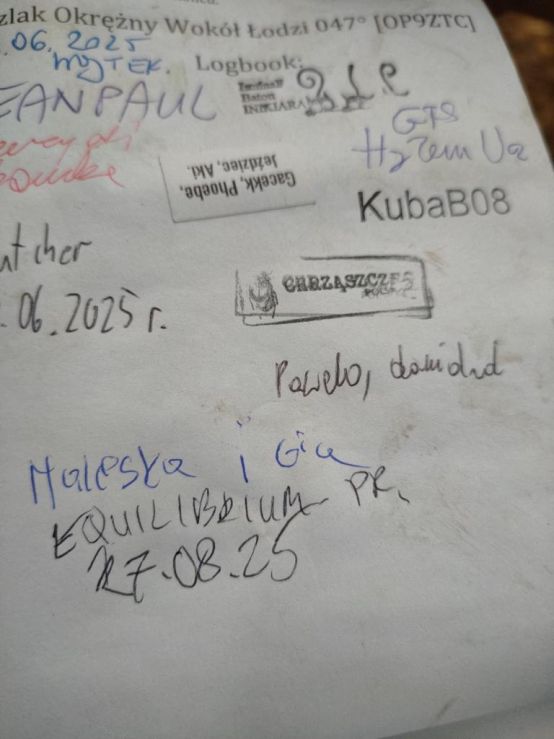 zlak Okrężny Wokół Łodzi 047° [OP9ZTC]
.06.2025
WOJTEK. Logbook:
EANPAUL
GTS
KubaB08
Gacekk, Phoebe,
Jeździec, Aki.
utcher
.06.2025 r.
CHRZĄSZCZES
Pawelo, dawidnd
Maleska i Gia
EQUILIBRIUM PR.
27.08.25